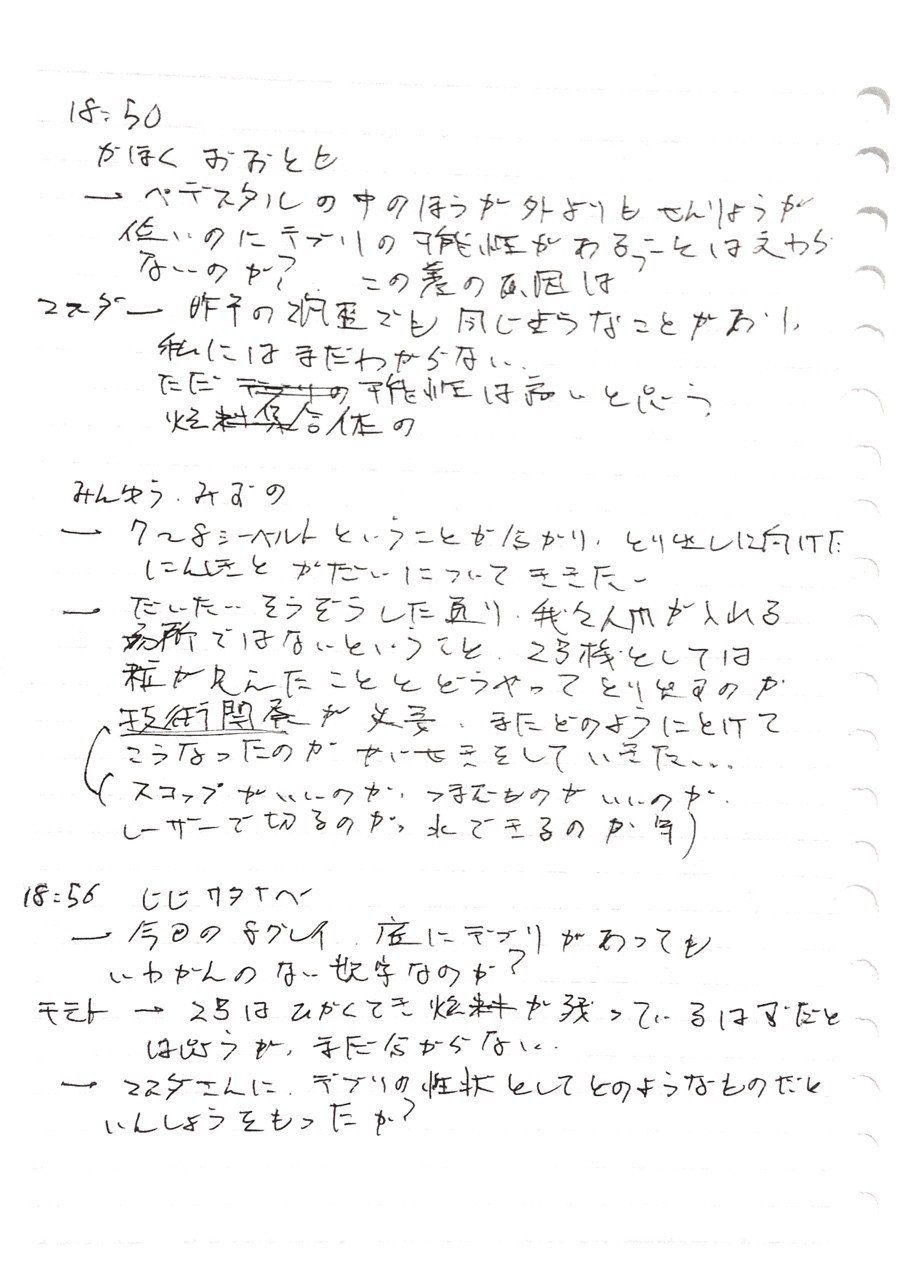 18:50
かほく おおとも
→ ペデスタルの中のほうが外よりもせんりょうが
低いのにデブリの可能性があるっことは変わら
ないのか? この差の原因は
マスダー 昨年の調査でも同じようなことがあり、
私にはまだわからない、
ただ デブリの可能性は高いと思う
燃料集合体の
みんゆう. みずの
→ 7~8シーベルトということが分かり、とり出しに向けた
にんしきと かだいについて ききたい
→ だいたい そうぞうした通り、我々人間が入れる
場所ではないということ、2号機としては
粒が見えたことと どうやってとり出すのか
技術開発が必要、またどのようにとけて
こうなったのか せいせきをしていきたい
(スコップがいいのか、つまむものがいいのか、
レーザーで切るのか、水できるのか 等)
18:56 じじ ワタナベ
→ 今回の8グレイ、底にデブリがあっても
いわかんのない数字なのか?
モモト → 2号はひかくてき燃料が残っているはずだと
は思うが、まだ分からない、
→ マスダさんに、デブリの性状としてどのようなものだと
いんしょうをもったか?